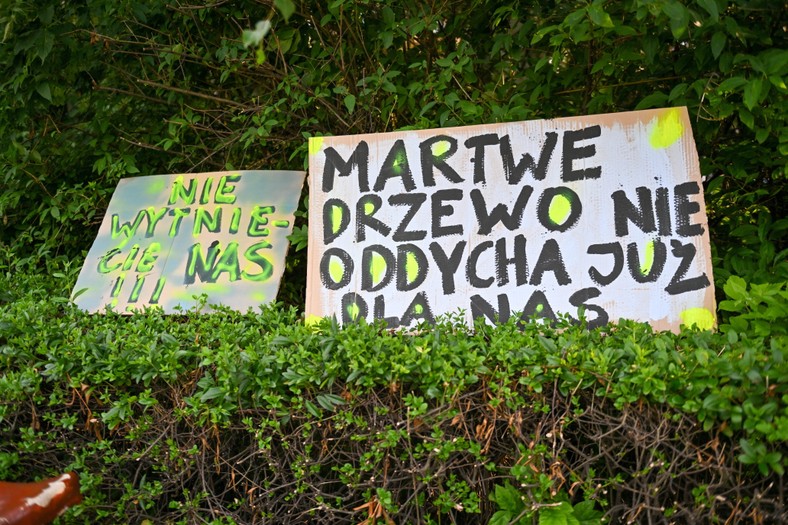 NIE
WYTNIE-
CIE NAS
!!!
MARTWE
DRZEWO NIE
ODDYCHA JUŻ
DLA NAS